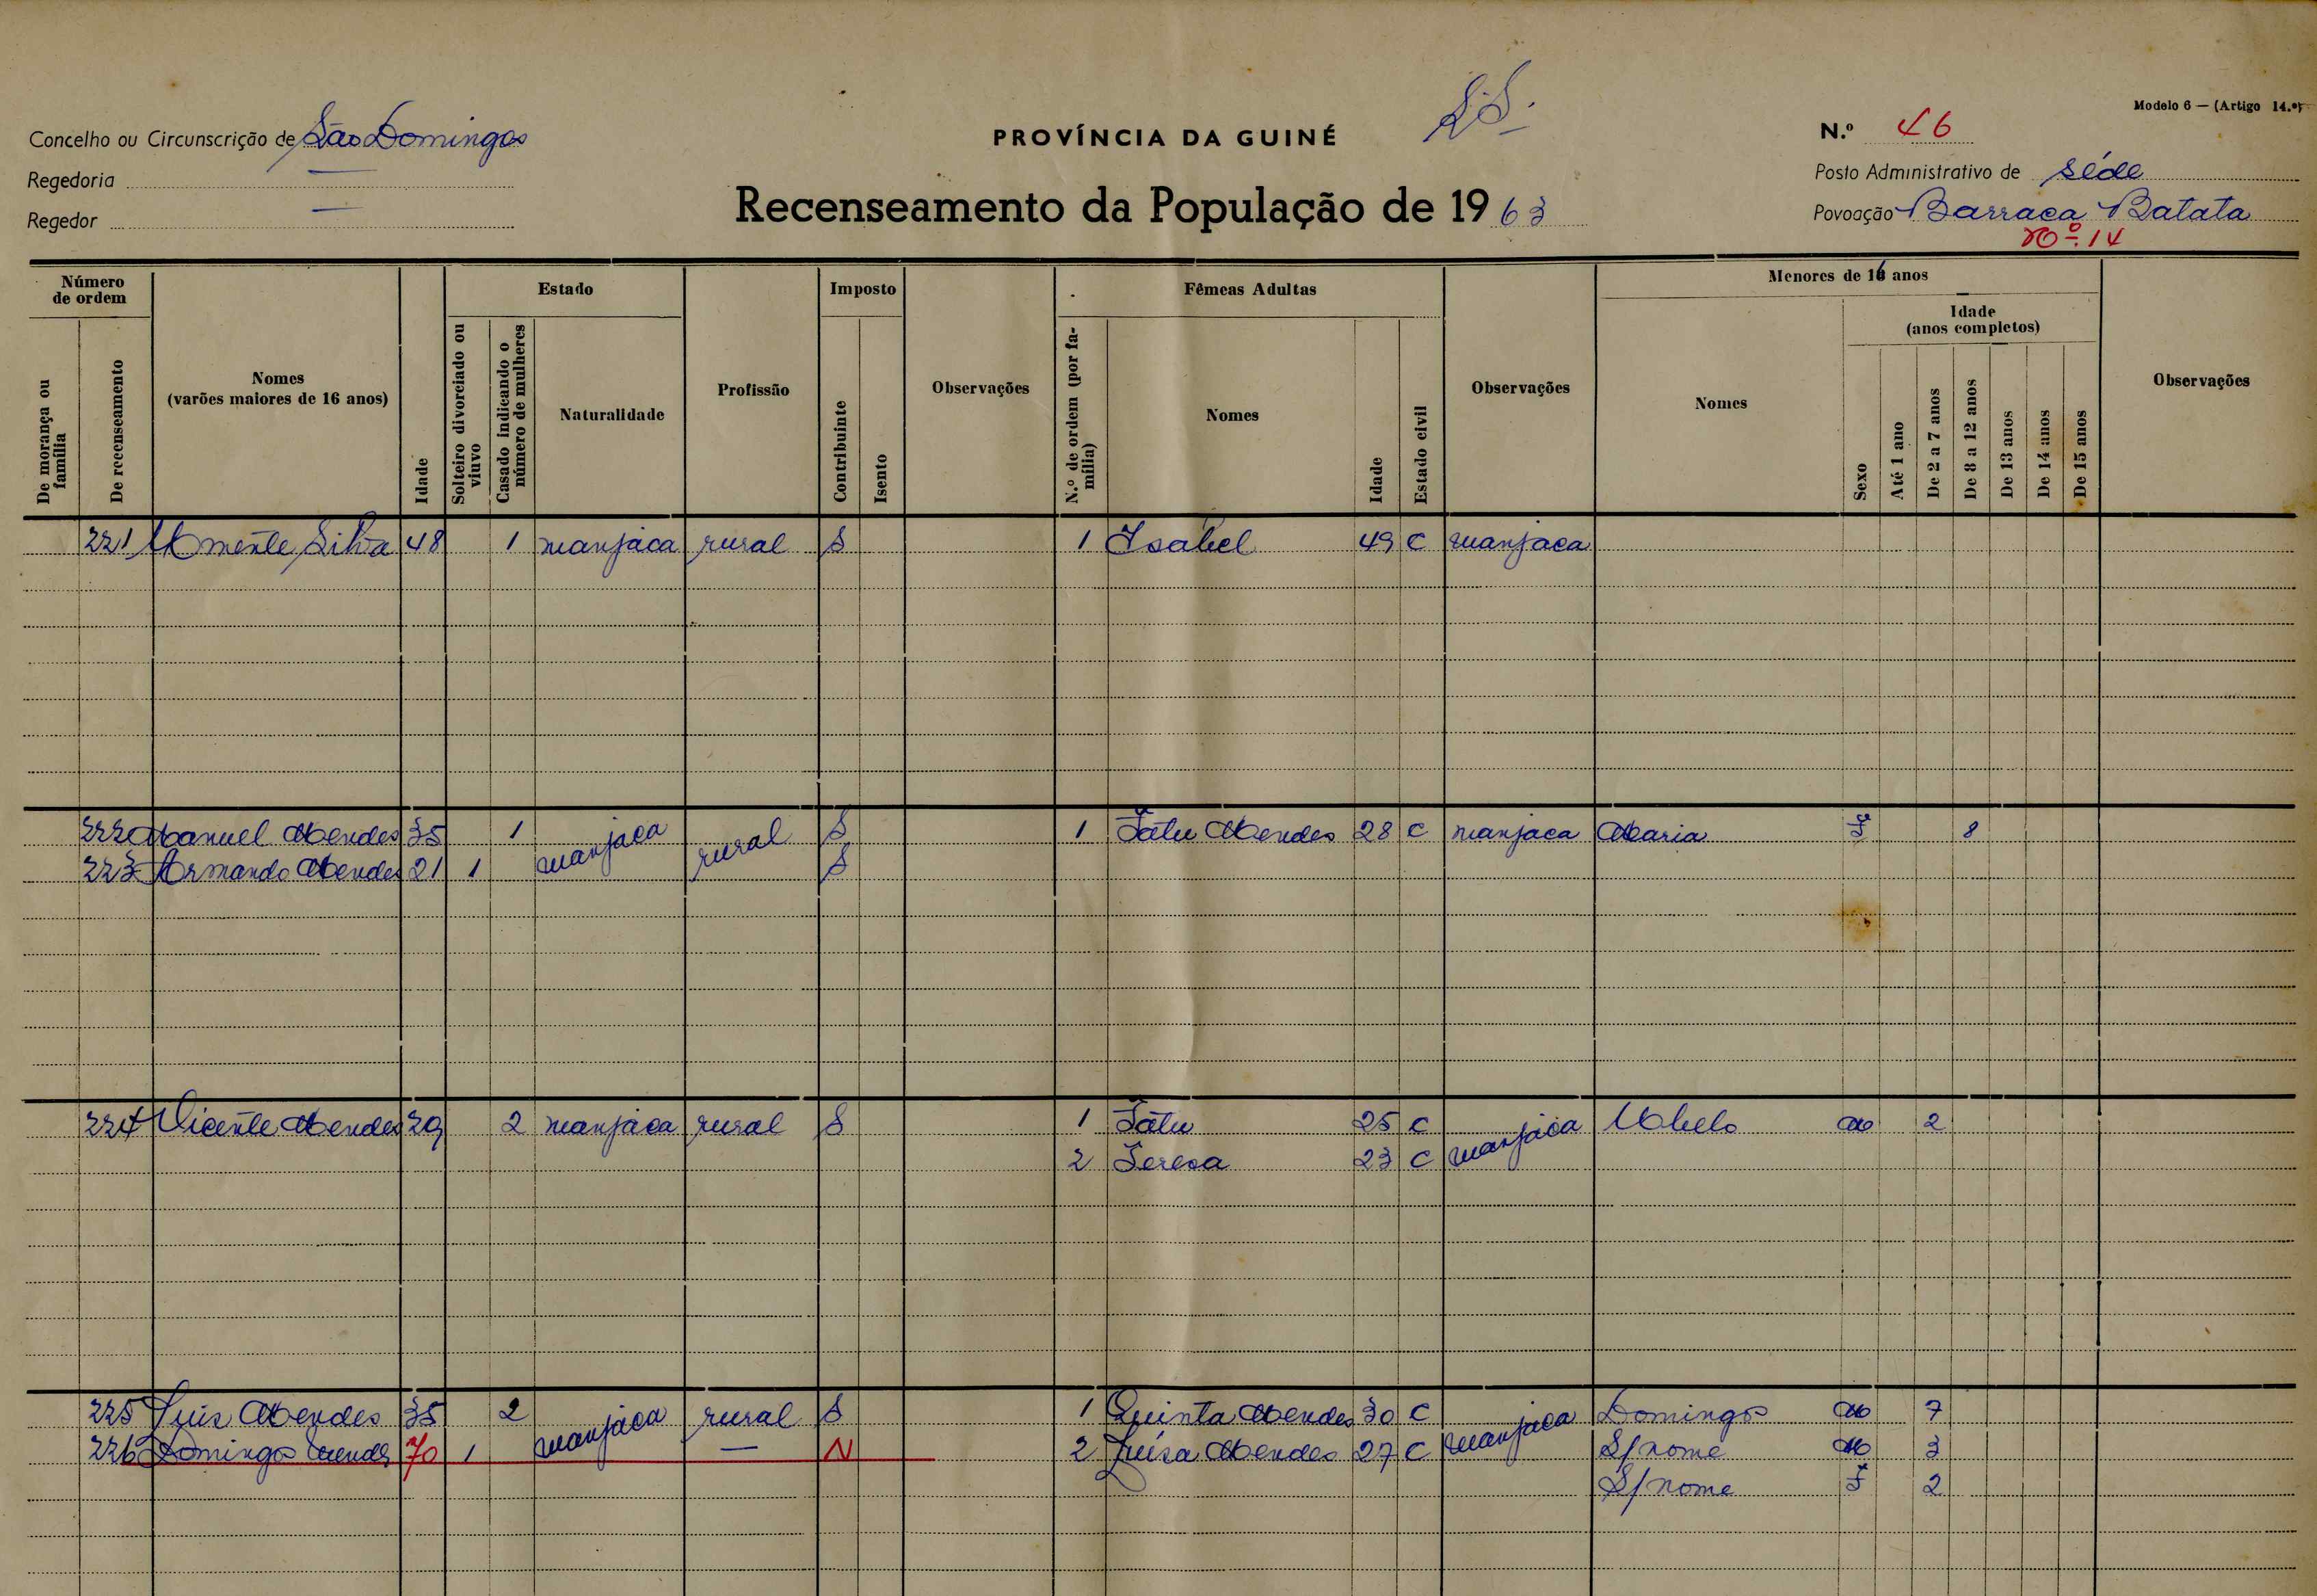 Modelo 6 — (Artigo 14.º)
Concelho ou Circunscrição de São Domingos
PROVÍNCIA DA GUINÉ
N.º 46
Regedoria —
Posto Administrativo de Séde
Regedor —
Recenseamento da População de 1963
Povoação Barraca Batata
Nº. 14
Número de ordem
De morança ou família
De recenseamento
Nomes (varões maiores de 16 anos)
Idade
Estado
Solteiro divorciado ou viuvo
Casado indicando o número de mulheres
Naturalidade
Profissão
Imposto
Contribuinte
Isento
Observações
Fêmeas Adultas
N.º de ordem (por família)
Nomes
Idade
Estado civil
Observações
Menores de 16 anos
Nomes
Idade (anos completos)
Sexo
Até 1 ano
De 2 a 7 anos
De 8 a 12 anos
De 13 anos
De 14 anos
De 15 anos
Observações
221 Silva 48 1 manjaca rural S 1 Isabel 49 C manjaca
222 Manuel Mendes 35 1 manjaca rural S 1 Fatu Mendes 28 C manjaca Maria F 8
223 Armando Mendes 21 1 S
224 Vicente Mendes 29 2 manjaca rural S 1 Fatu 25 C manjaca M 2
2 Teresa 23 C
225 Luis Mendes 35 2 manjaca rural S 1 Quinta Mendes 30 C manjaca Domingos M 7
226 Domingos Mendes 70 1 — N 2 Luisa Mendes 27 C S/nome M 3
S/nome F 2